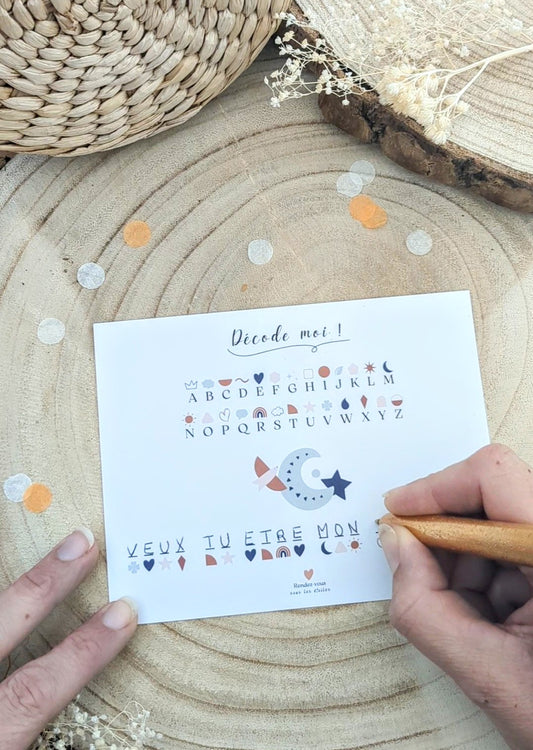 Décode moi !
A B C D E F G H I J K L M
N O P Q R S T U V W X Y Z
VEUX TU ETRE MON
Rendez-vous
sous les étoiles